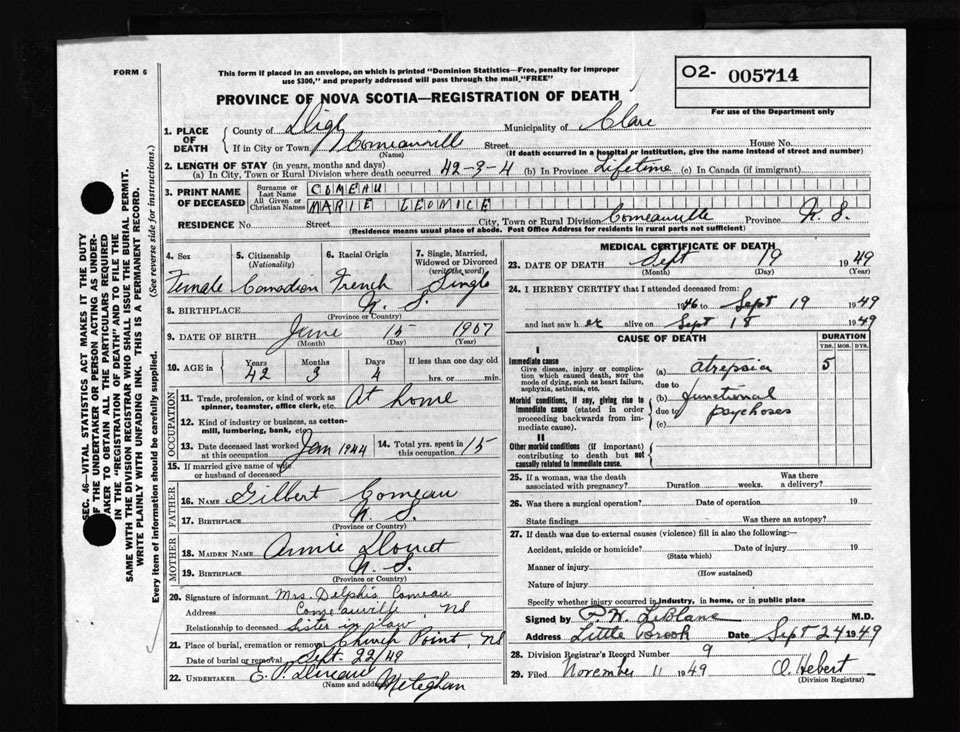 FORM 6
This form if placed in an envelope, on which is printed "Dominion Statistics—Free, penalty for improper
use $300," and properly addressed will pass through the mail "FREE"
O2- 005714
For use of the Department only
PROVINCE OF NOVA SCOTIA—REGISTRATION OF DEATH
1. PLACE OF DEATH
County of Digby Municipality of Clare
If in City or Town Comeauville Street House No.
(Name) (If death occurred in a hospital or institution, give the name instead of street and number)
2. LENGTH OF STAY (in years, months and days)
(a) In City, Town or Rural Division where death occurred 42-3-4 (b) In Province Lifetime (c) In Canada (if immigrant)
3. PRINT NAME OF DECEASED
Surname or Last Name COMEAU
All Given or Christian Names MARIE LEONICE
RESIDENCE No. Street City, Town or Rural Division Comeauville Province N. S.
(Residence means usual place of abode. Post Office Address for residents in rural parts not sufficient)
4. Sex 5. Citizenship (Nationality) 6. Racial Origin 7. Single, Married, Widowed or Divorced (write the word)
Female Canadian French Single
8. BIRTHPLACE N. S.
(Province or Country)
9. DATE OF BIRTH June 15 1907
(Month) (Day) (Year)
10. AGE in Years Months Days If less than one day old
42 3 4 hrs. or min.
OCCUPATION
11. Trade, profession, or kind of work as spinner, teamster, office clerk, etc. At home
12. Kind of industry or business, as cotton-mill, lumbering, bank, etc.
13. Date deceased last worked at this occupation Jan 1944 14. Total yrs. spent in this occupation 15
15. If married give name of wife or husband of deceased
FATHER
16. NAME Gilbert Comeau
17. BIRTHPLACE N. S.
(Province or Country)
MOTHER
18. MAIDEN NAME Annie
19. BIRTHPLACE N. S.
(Province or Country)
20. Signature of informant Mrs. Delphis Comeau
Address Comeauville NS
Relationship to deceased Sister in law
21. Place of burial, cremation or removal Church Point, NS
Date of burial or removal Sept. 22/49
22. UNDERTAKER E. P. Meteghan
(Name and address)
MEDICAL CERTIFICATE OF DEATH
23. DATE OF DEATH Sept 19 1949
(Month) (Day) (Year)
24. I HEREBY CERTIFY that I attended deceased from:
1946 to Sept 19 1949
and last saw her alive on Sept 18 1949
CAUSE OF DEATH DURATION
YRS. MOS. DYS.
I
Immediate cause
Give disease, injury or complication which caused death, NOT the mode of dying, such as heart failure, asphyxia, asthenia, etc.
(a) atrepsia 5
due to
Morbid conditions, if any, giving rise to immediate cause (stated in order proceeding backwards from immediate cause).
(b) functional
due to psychoses
(c)
II
Other morbid conditions (if important) contributing to death but not causally related to immediate cause.
25. If a woman, was the death associated with pregnancy? Duration weeks. Was there a delivery?
26. Was there a surgical operation? Date of operation 19
State findings Was there an autopsy?
27. If death was due to external causes (violence) fill in also the following:—
Accident, suicide or homicide? Date of injury 19
(State which)
Manner of injury
(How sustained)
Nature of injury
Specify whether injury occurred in industry, in home, or in public place
Signed by P. H. LeBlanc M.D.
Address Little Brook Date Sept 24 1949
28. Division Registrar's Record Number 9
29. Filed November 11 1949 O. Hebert
(Division Registrar)
SEC. 46—VITAL STATISTICS ACT MAKES IT THE DUTY
OF THE UNDERTAKER OR PERSON ACTING AS UNDER-
TAKER TO OBTAIN ALL THE PARTICULARS REQUIRED
IN THE "REGISTRATION OF DEATH" AND TO FILE THE
SAME WITH THE DIVISION REGISTRAR WHO SHALL ISSUE THE BURIAL PERMIT.
WRITE PLAINLY WITH UNFADING INK. THIS IS A PERMANENT RECORD.
Every item of information should be carefully supplied. (See reverse side for instructions.)